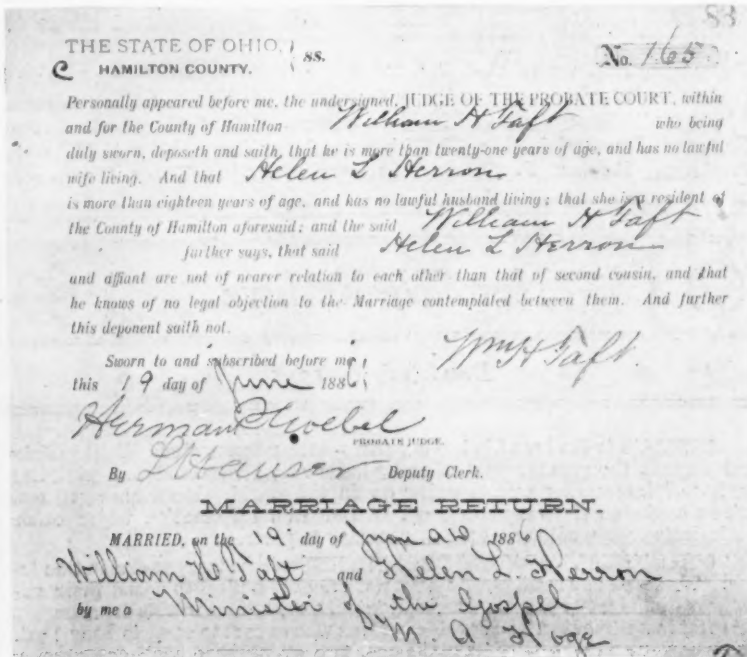 83
THE STATE OF OHIO, } ss. No. 165
C HAMILTON COUNTY.
Personally appeared before me, the undersigned, JUDGE OF THE PROBATE COURT, within
and for the County of Hamilton William H Taft who being
duly sworn, deposeth and saith, that he is more than twenty-one years of age, and has no lawful
wife living. And that Helen L Herron
is more than eighteen years of age, and has no lawful husband living; that she is a resident of
the County of Hamilton aforesaid; and the said William H Taft
further says, that said Helen L Herron
and affiant are not of nearer relation to each other than that of second cousin, and that
he knows of no legal objection to the Marriage contemplated between them. And further
this deponent saith not.
Sworn to and subscribed before me Wm H Taft.
this 19 day of June 1886
Herman Goebel
PROBATE JUDGE.
By L Hauser Deputy Clerk.
MARRIAGE RETURN.
MARRIED, on the 19 day of June AD 1886
William H Taft and Helen L. Herron
by me a Minister of the Gospel
M. A. Hoge